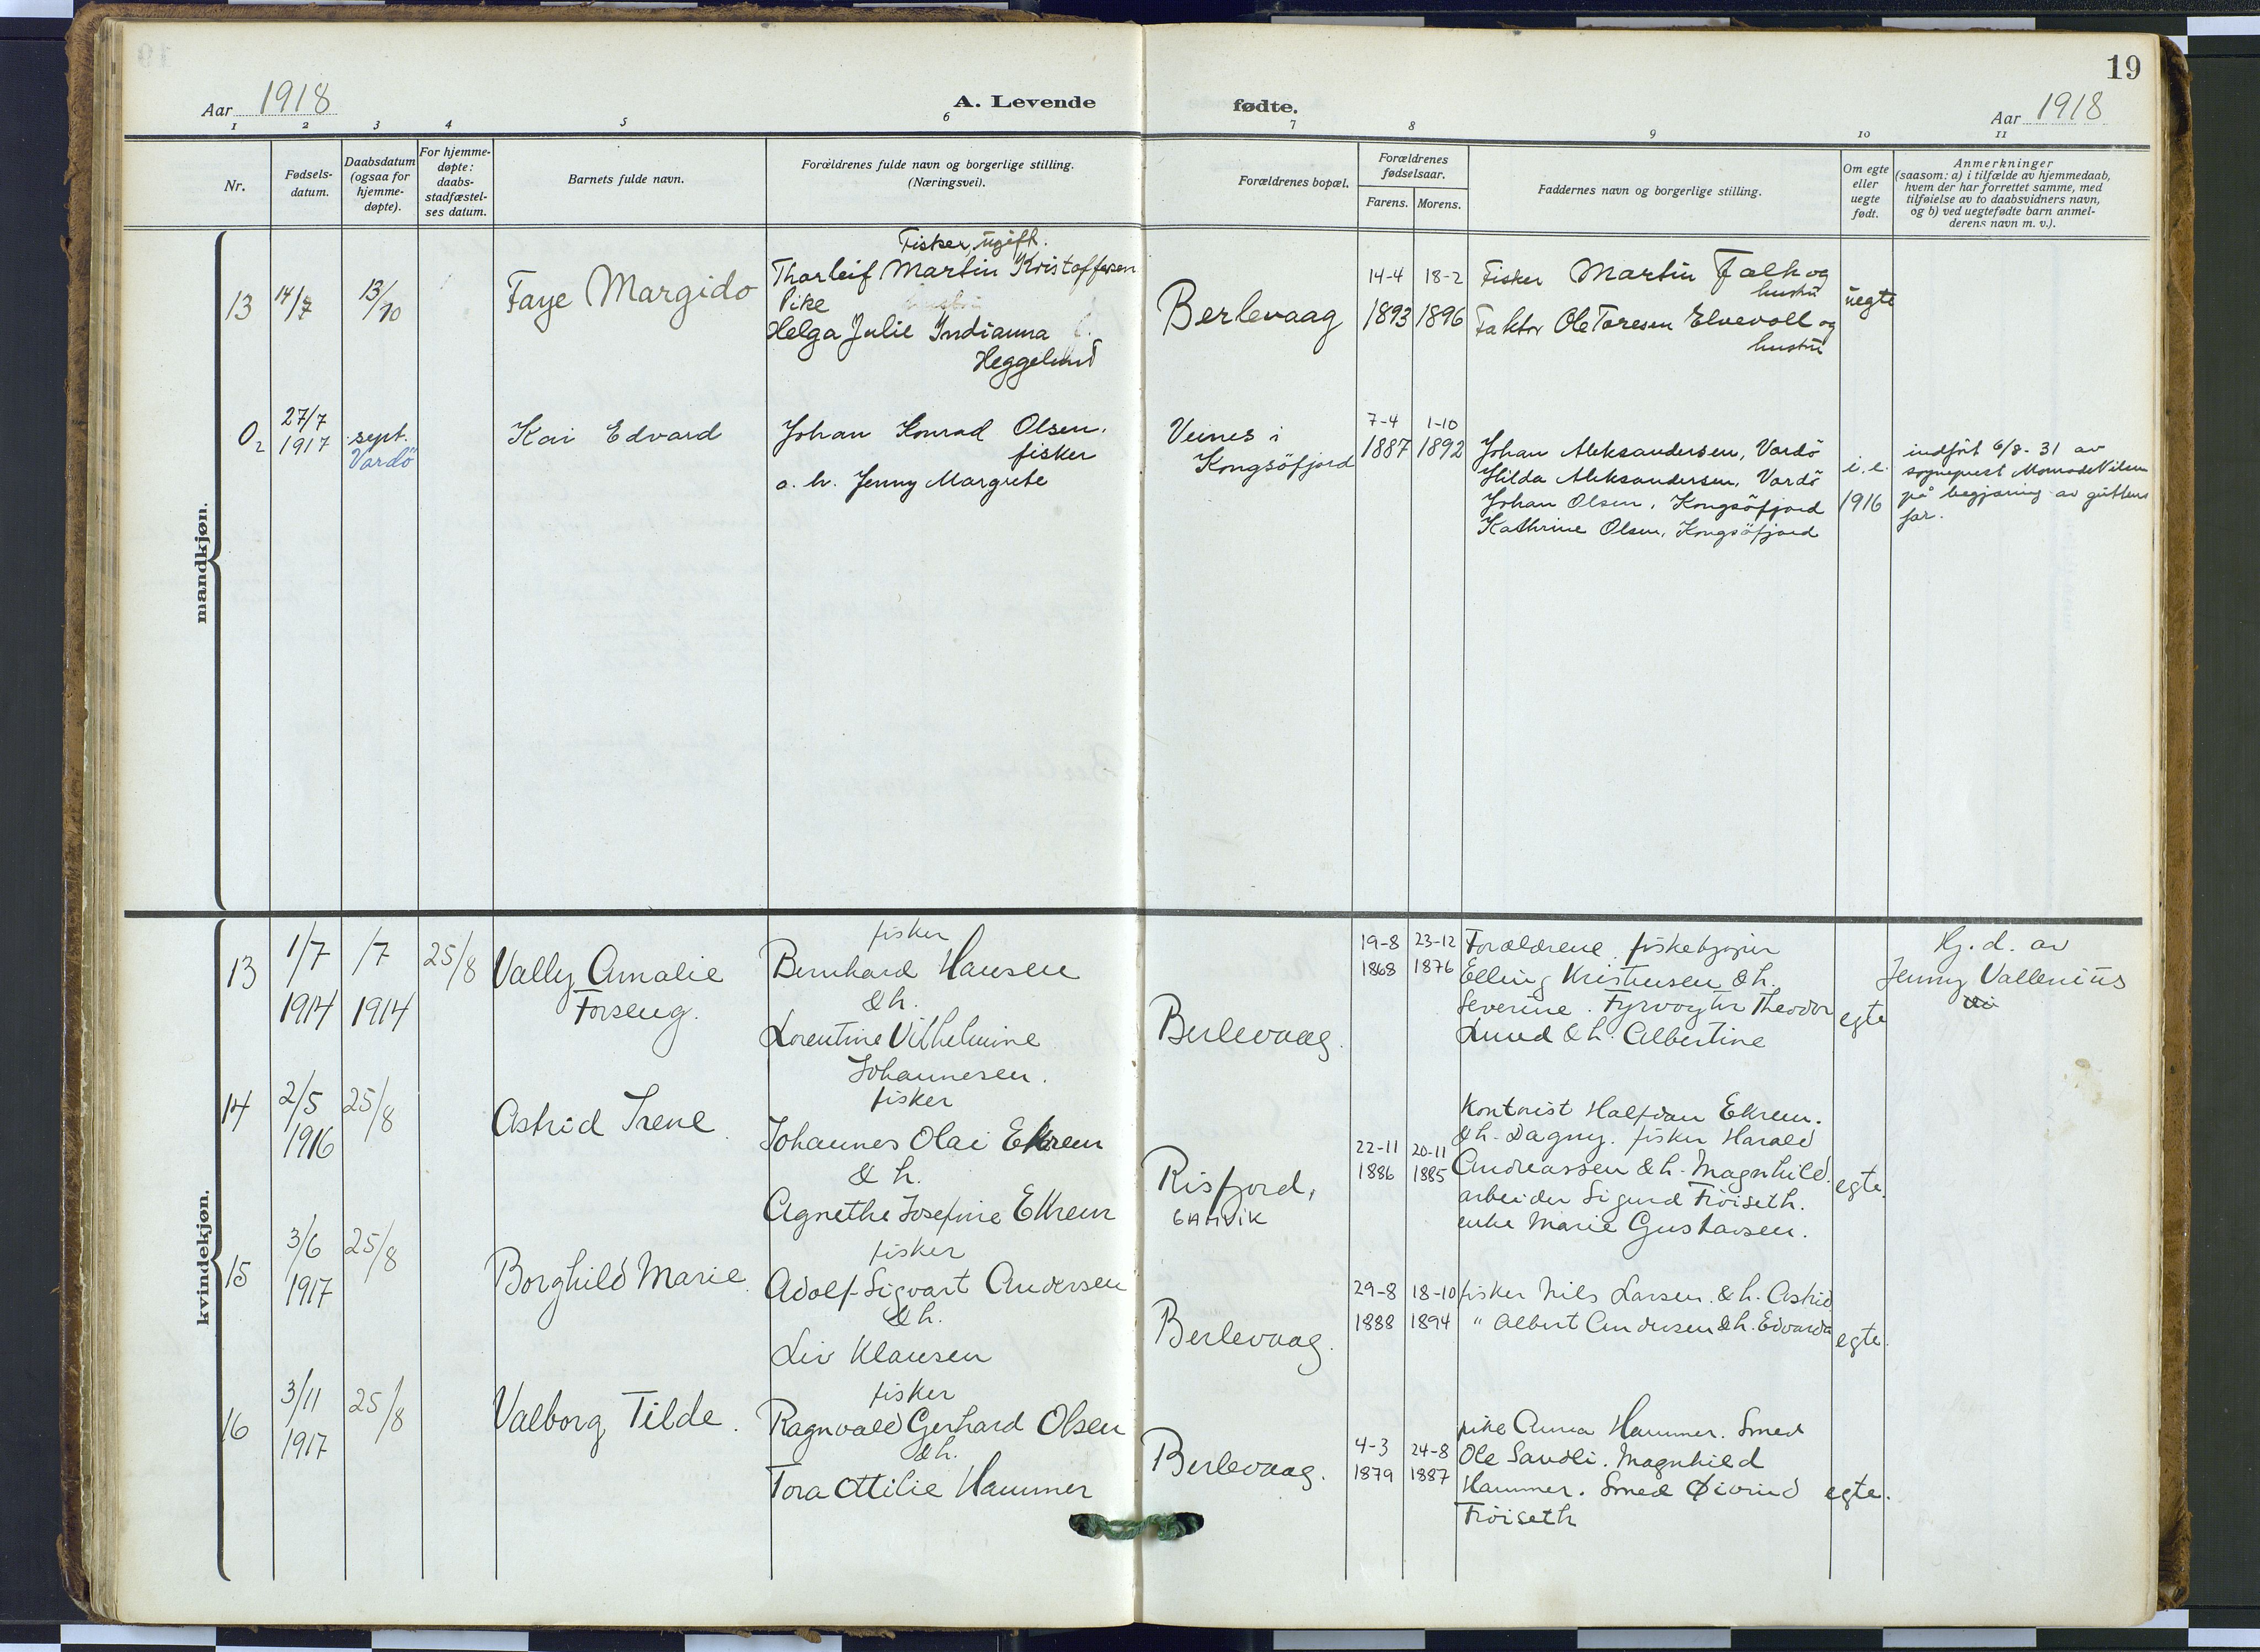 19
Aar 1918
A. Levende fødte.
Aar 1918
1 2 3 4 5 6 7 8 9 10 11
Nr.
Fødsels-
datum.
Daabsdatum
(ogsaa for
hjemme-
døpte).
For hjemme-
døpte:
daabs-
stadfæstel-
ses datum.
Barnets fulde navn.
Forældrenes fulde navn og borgerlige stilling.
(Næringsvei).
Forældrenes bopæl.
Forældrenes
fødselsaar.
Farens. Morens.
Faddernes navn og borgerlige stilling.
Om egte
eller
uegte
født.
Anmerkninger
(saasom: a) i tilfælde av hjemmedaab,
hvem der har forrettet samme, med
tilføielse av to daabsvidners navn,
og b) ved uegtefødte barn anmel-
derens navn m. v.).
mandkjøn.
13
14/7
13/10
Faye Margido
Fisker, ugift.
Thorleif Martin Kristoffersen
Pike
Helga Julie Indianna
Heggelund
Berlevaag
14-4
1893
18-2
1896
Fisker Martin Falk og
hustru
Faktor Ole Toresen Elvevoll og
hustru
uegte
O2
27/7
1917
sept.
Vardö
Kai Edvard
Johan Konrad Olsen,
fisker
o. h. Jenny Margrete
Veines i
Kongsöfjord
7-4
1887
1-10
1892
Johan Aleksandersen, Vardö
Hilda Aleksandersen, Vardö
Johan Olsen, Kongsöfjord
Kathrine Olsen, Kongsöfjord
i. e.
1916
indført 6/8-31 av
sogneprest
på begjæring av guttens
far.
kvindekjøn.
13
1/7
1914
/7
1914
25/8
Vally Amalie
Forseng.
fisker
Bernhard Hansen
& h.
Lorentine Vilhelmine
Johannesen.
Berlevaag.
19-8
1868
23-12
1876
Forældrene. fiskekjøper
Elling Kristensen & h.
Severine. Fyrvogter Theodor
Lund & h. Albertine
egte
Hj. d. av
Jenny Vallenius
14
2/5
1916
25/8
Astrid Irene
fisker
Johannes Olai Ekrem
& h.
Agnethe Josefine Ekrem
Risfjord,
GAMVIK
22-11
1886
20-11
1885
Kontorist Halfdan Ekrem.
& h. Dagny. fisker Harald
Andreassen & h. Magnhild.
arbeider Sigurd Frøiseth.
enke Marie Gustavsen.
egte.
15
3/6
1917
25/8
Borghild Marie.
fisker
Adolf Sigvart Andersen
& h.
Liv Klausen
Berlevaag.
29-8
1888
18-10
1894
fisker Nils Larsen. & h. Astrid
" Albert Andersen & h. Edvarda
egte.
16
3/11
1917
25/8
Valborg Tilde.
fisker
Ragnvald Gerhard Olsen
& h.
Tora Ottilie Hammer
Berlevaag.
4-3
1879
24-8
1887
pike Anna Hammer. Smed
Ole Sandli. Magnhild
Hammer. Smed Øivind
Frøiseth
egte.